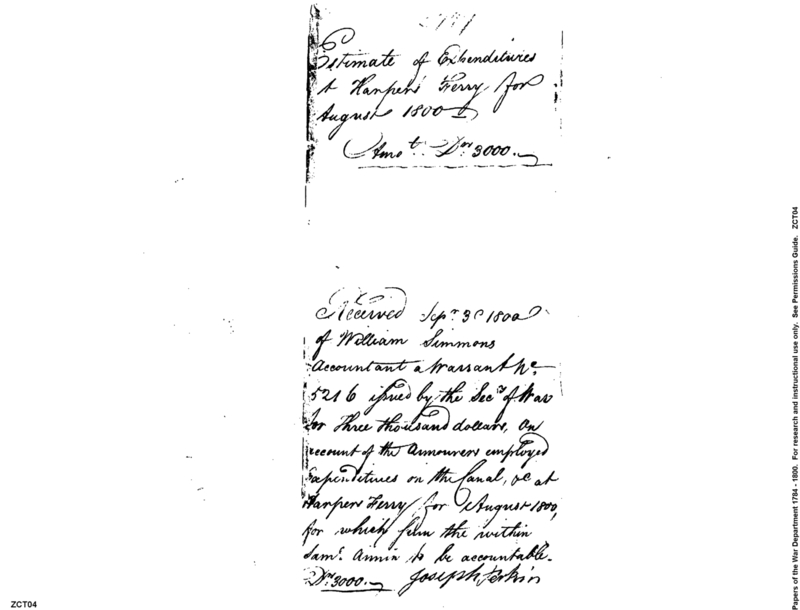 Estimate of Expenditures
at Harpers Ferry for
August 1800
Amot. Drs 3000.
Received Sepr. 3d 1800
of William Simmons
Accountant a Warrant No.
5216 issued by the Secy of War
for Three thousand dollars, on
account of the Armourers employed
Expenditures on the Canal, &c at
Harpers Ferry for August 1800,
for which sum the within
Saml. Annin to be accountable.
Drs. 3000. Joseph Perkin
ZCT04
Papers of the War Department 1784 - 1800. For research and instructional use only. See Permissions Guide. ZCT04